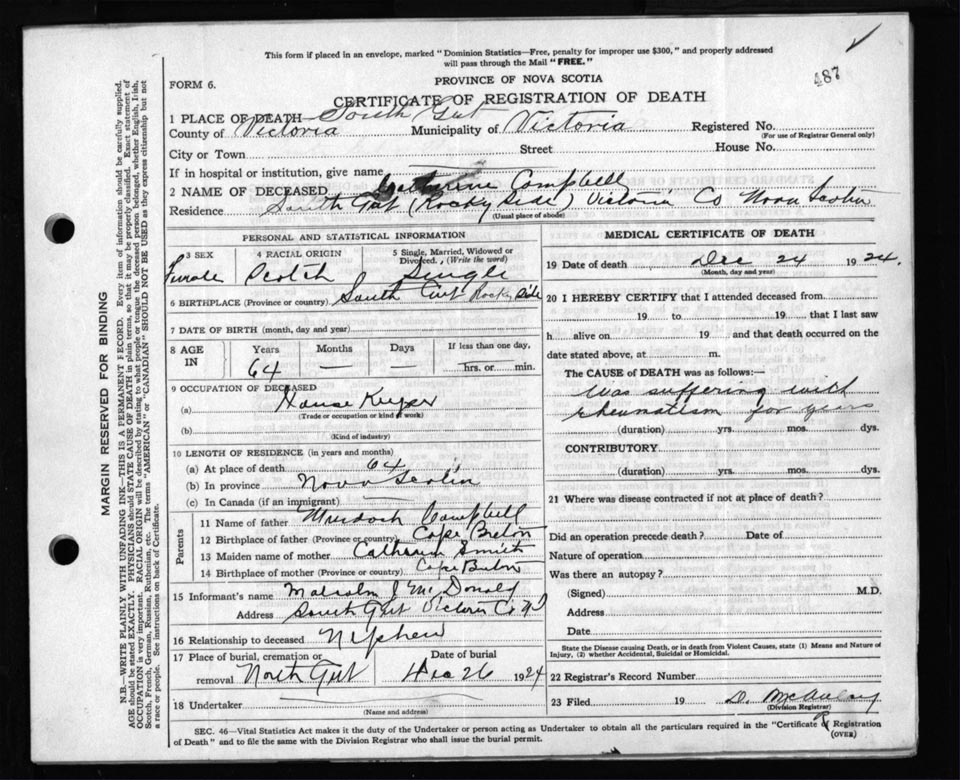 This form if placed in an envelope, marked "Dominion Statistics—Free, penalty for improper use $300," and properly addressed
will pass through the Mail "FREE."
487
FORM 6.
PROVINCE OF NOVA SCOTIA
CERTIFICATE OF REGISTRATION OF DEATH
1 PLACE OF DEATH— South Gut
County of Victoria Municipality of Victoria Registered No.
(For use of Registrar General only)
City or Town Street House No.
If in hospital or institution, give name
2 NAME OF DECEASED Catherine Campbell
Residence South Gut (Rocky Side) Victoria Co Nova Scotia
(Usual place of abode)
PERSONAL AND STATISTICAL INFORMATION
3 SEX 4 RACIAL ORIGIN 5 Single, Married, Widowed or Divorced. (Write the word)
Female Scotch Single
6 BIRTHPLACE (Province or country) South Gut Rocky Side
7 DATE OF BIRTH (month, day and year)
8 AGE IN Years Months Days If less than one day,
64 — — hrs. or min.
9 OCCUPATION OF DECEASED
(a) House Keeper
(Trade or occupation or kind of work)
(b)
(Kind of industry)
10 LENGTH OF RESIDENCE (in years and months)
(a) At place of death 64
(b) In province Nova Scotia
(c) In Canada (if an immigrant)
Parents
11 Name of father Murdoch Campbell
12 Birthplace of father (Province or country) Cape Breton
13 Maiden name of mother Smith
14 Birthplace of mother (Province or country) Cape Breton
15 Informant's name Malcolm J McDonald
Address South Gut Victoria Co NS
16 Relationship to deceased Nephew
17 Place of burial, cremation or removal Date of burial
North Gut Dec 26 1924
18 Undertaker
(Name and address)
MEDICAL CERTIFICATE OF DEATH
19 Date of death Dec 24 1924.
(Month, day and year)
20 I HEREBY CERTIFY that I attended deceased from
19 to 19 that I last saw
h alive on 19 and that death occurred on the
date stated above, at m.
The CAUSE OF DEATH was as follows:—
Was suffering with
rheumatism for years
(duration) yrs. mos. dys.
CONTRIBUTORY
(duration) yrs. mos. dys.
21 Where was disease contracted if not at place of death?
Did an operation precede death? Date of
Nature of operation
Was there an autopsy?
(Signed) M.D.
Address
Date
State the Disease causing Death, or in death from Violent Causes, state (1) Means and Nature of
Injury, (2) whether Accidental, Suicidal or Homicidal.
22 Registrar's Record Number
23 Filed 19 D. McAulay
(Division Registrar)
SEC. 46—Vital Statistics Act makes it the duty of the Undertaker or person acting as Undertaker to obtain all the particulars required in the "Certificate of Registration
of Death" and to file the same with the Division Registrar who shall issue the burial permit.
(OVER)
MARGIN RESERVED FOR BINDING
N.B.—WRITE PLAINLY WITH UNFADING INK—THIS IS A PERMANENT RECORD. Every item of information should be carefully supplied.
AGE should be stated EXACTLY. PHYSICIANS should STATE CAUSE OF DEATH in plain terms, so that it may be properly classified. Exact statement of
OCCUPATION is very important. RACIAL ORIGIN will be described by stating to what people or tongue the deceased person belonged, whether English, Irish,
Scotch, French, German, Russian, Ruthenian, etc. The terms "AMERICAN" or "CANADIAN" SHOULD NOT BE USED as they express citizenship but not
a race or people. See instructions on back of Certificate.